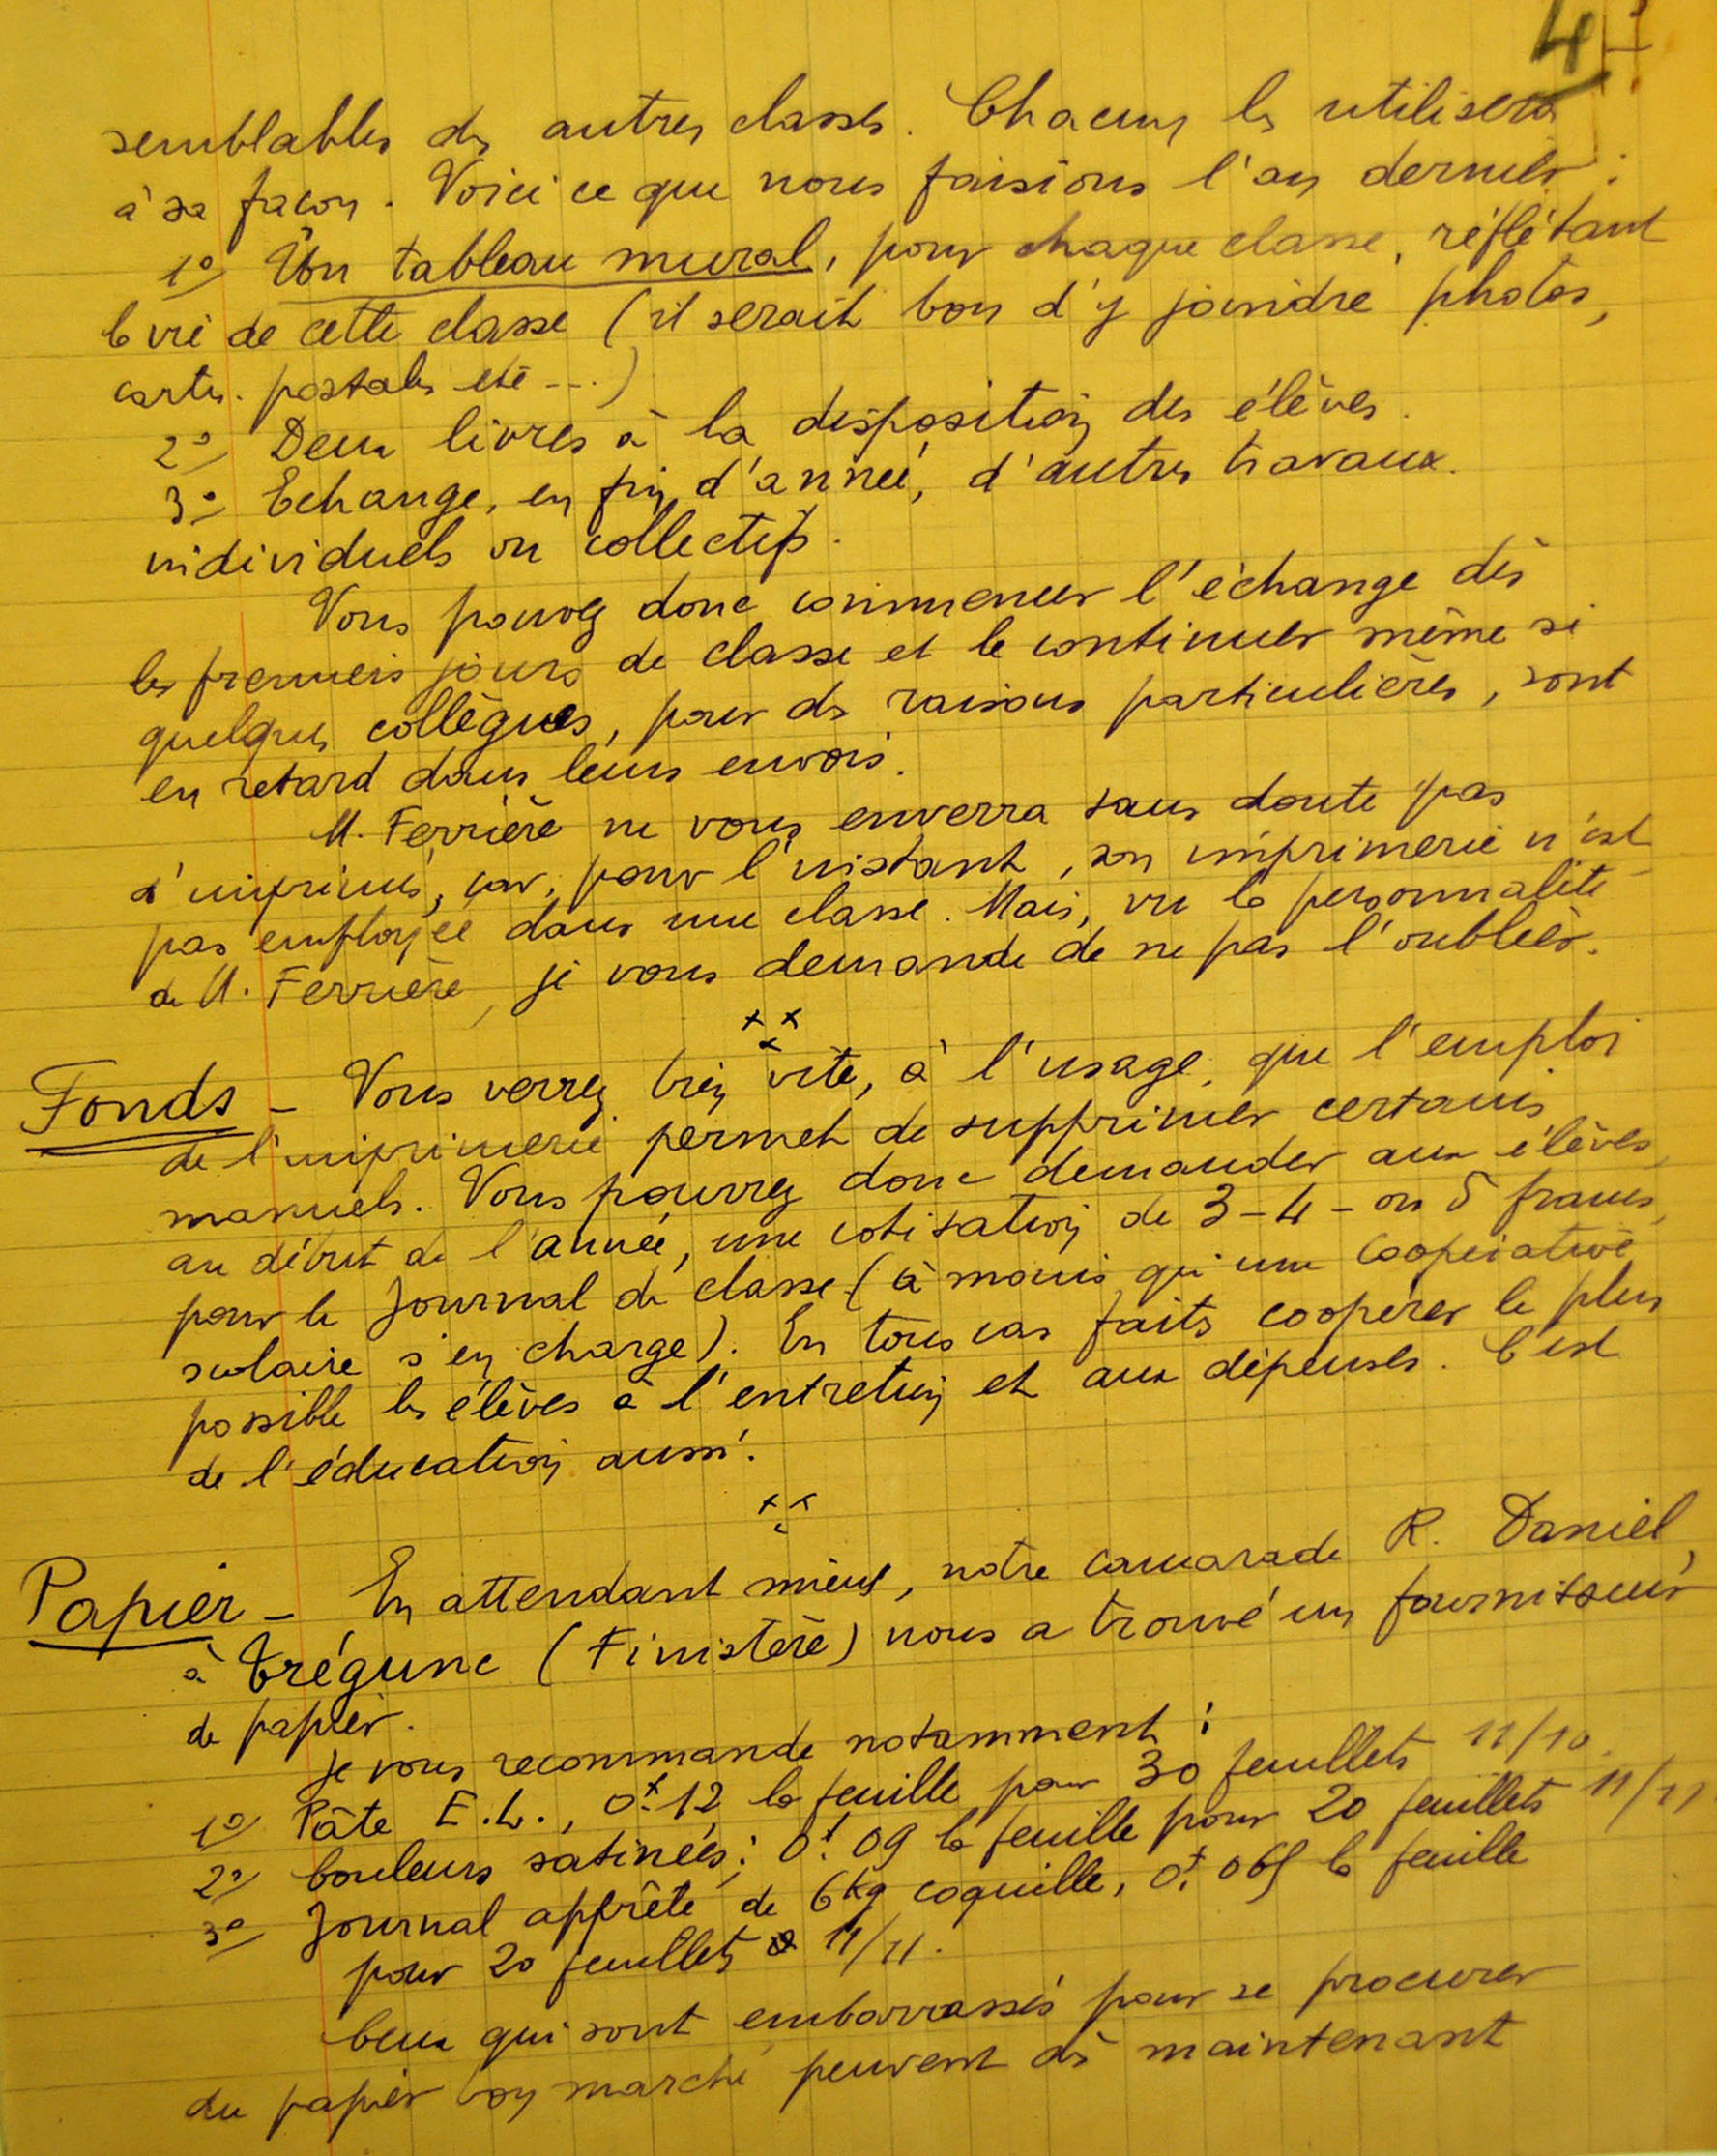 4
semblables des autres classes. Chacun les utilisera
à sa façon. Voici ce que nous faisions l'an dernier :
1º Un tableau mural, pour chaque classe, réflétant
la vie de cette classe (il serait bon d'y joindre photos,
cartes-postales etc ---)
2º Deux livres à la disposition des élèves.
3º Echange, en fin d'année, d'autres travaux
individuels ou collectifs.
Vous pouvez donc commencer l'échange dès
les premiers jours de classe et le continuer même si
quelques collègues, pour des raisons particulières, sont
en retard dans leurs envois.
M. Ferrière ne vous enverra sans doute pas
d'imprimés, car, pour l'instant, son imprimerie n'est
pas employée dans une classe. Mais, vu la personnalité
de M. Ferrière, je vous demande de ne pas l'oublier.
x x
x
Fonds - Vous verrez bien vite, à l'usage, que l'emploi
de l'imprimerie permet de supprimer certains
manuels. Vous pourrez donc demander aux élèves,
au début de l'année, une cotisation de 3 - 4 - ou 5 francs,
pour le Journal de classe (à moins qu'une coopérative
scolaire s'en charge). En tous cas faites coopérer le plus
possible les élèves à l'entretien et aux dépenses. C'est
de l'éducation aussi.
x x
Papier - En attendant mieux, notre camarade R. Daniel,
à Trégunc (Finistère) nous a trouvé un fournisseur
de papier.
Je vous recommande notamment :
1º Pâte E.L., 0f.12 la feuille pour 30 feuillets 11/10.
2º Couleurs satinées : 0f.09 la feuille pour 20 feuillets 11/11
3º Journal apprêté de 6kg coquille, 0f.065 la feuille
pour 20 feuillets 11/11.
Ceux qui sont embarrassés pour se procurer
du papier bon marché peuvent dès maintenant